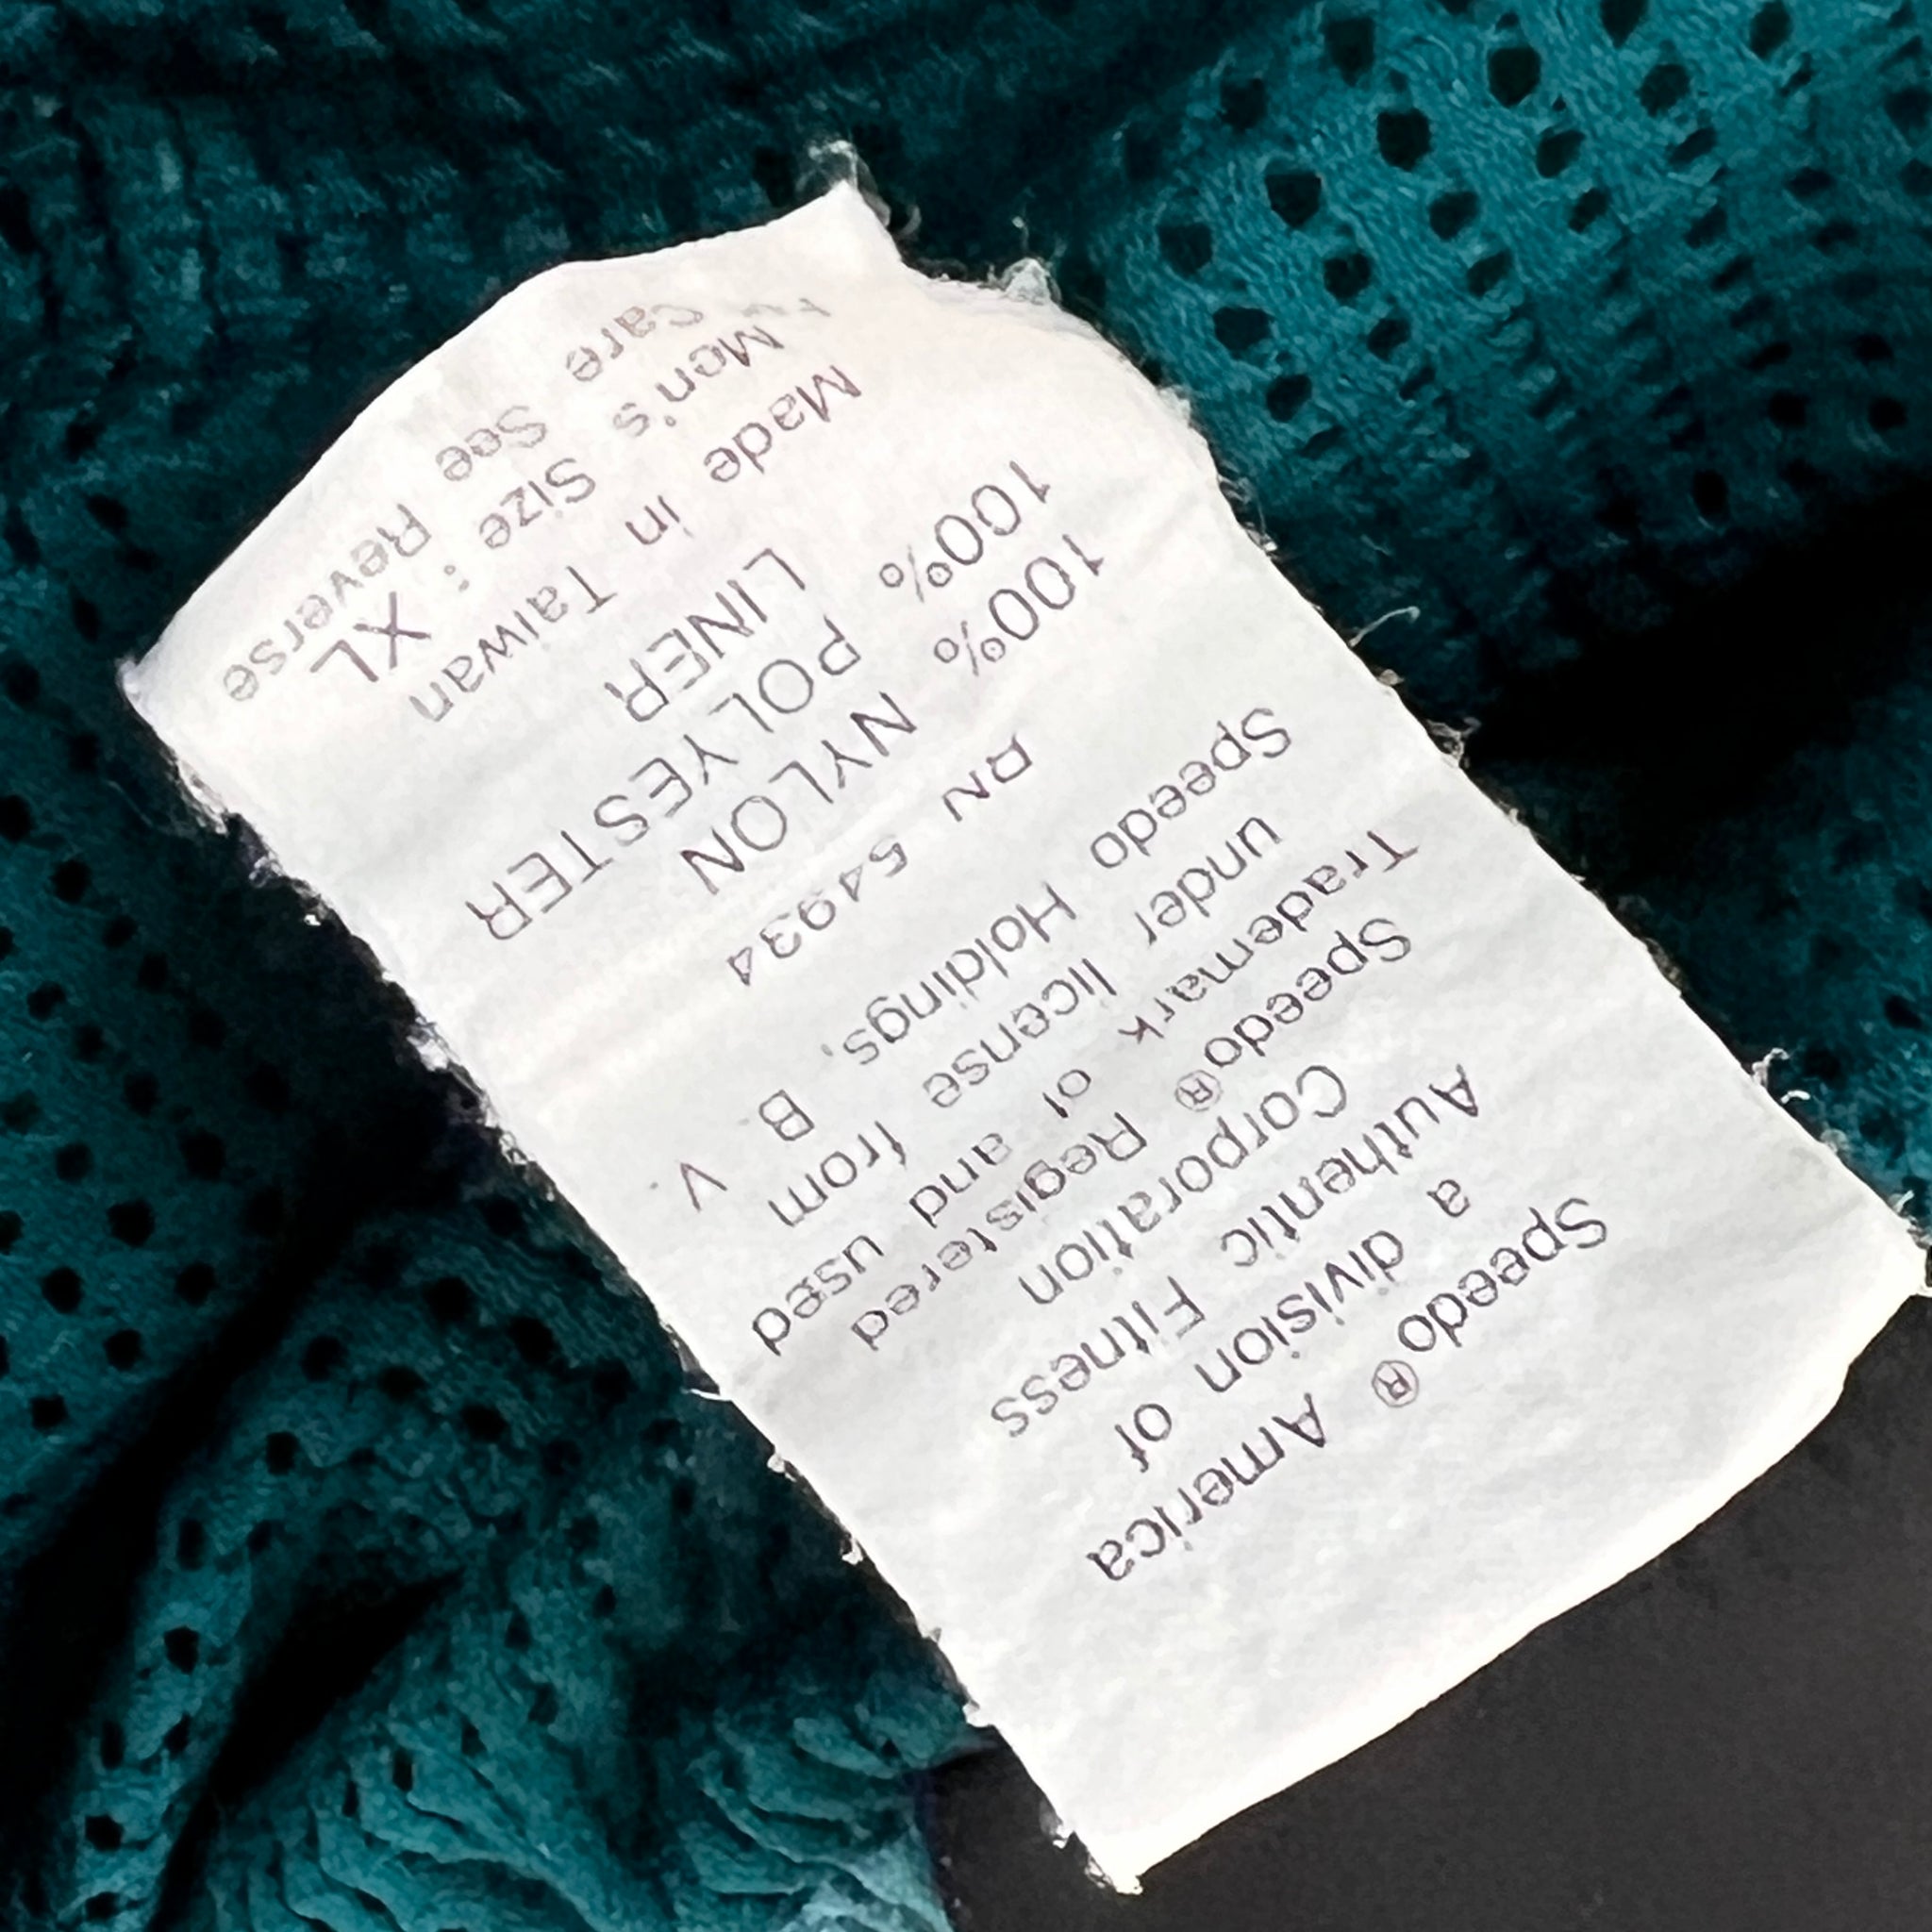 Speedo® America
a division of
Authentic Fitness
Corporation
Speedo® Registered
Trademark of and used
under license from
Speedo Holdings, B V.
RN 54934
100% NYLON
100% POLYESTER
LINER
Made in Taiwan
Men's Size : XL
Care See Reverse